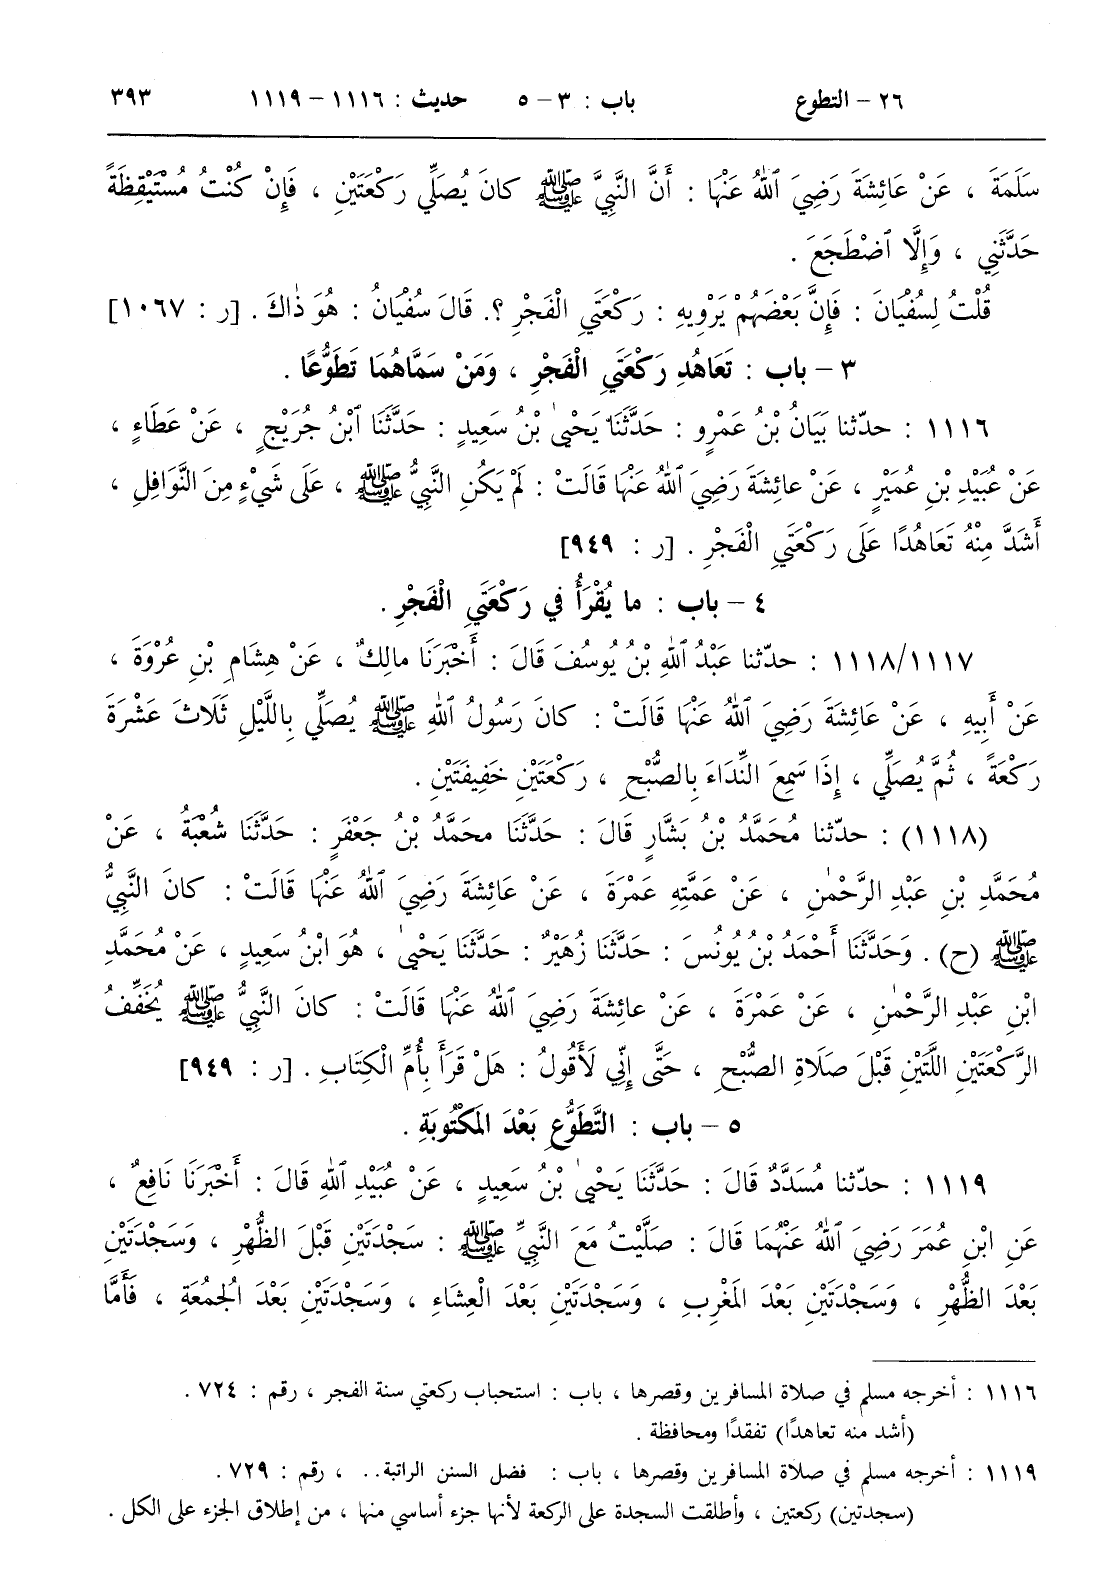 ٢٦ - التطوع باب : ٣ - ٥ حديث : ١١١٦ - ١١١٩ ٣٩٣
سَلَمَةَ ، عَنْ عَائِشَةَ رَضِيَ ٱللهُ عَنْهَا : أَنَّ النَّبِيَّ ﷺ كانَ يُصَلِّي رَكْعَتَيْنِ ، فَإِنْ كُنْتُ مُسْتَيْقِظَةً
حَدَّثَنِي ، وَإِلَّا ٱضْطَجَعَ .
قُلْتُ لِسُفْيَانَ : فَإِنَّ بَعْضَهُمْ يَرْوِيهِ : رَكْعَتَيِ الْفَجْرِ ؟. قَالَ سُفْيَانُ : هُوَ ذَاكَ . [ر : ١٠٦٧]
٣ - باب : تَعَاهُدِ رَكْعَتَيِ الْفَجْرِ ، وَمَنْ سَمَّاهُمَا تَطَوُّعًا .
١١١٦ : حدّثنا بَيَانُ بْنُ عَمْرٍو : حَدَّثَنَا يَحْيىٰ بْنُ سَعِيدٍ : حَدَّثَنَا ٱبْنُ جُرَيْجٍ ، عَنْ عَطَاءٍ ،
عَنْ عُبَيْدِ بْنِ عُمَيْرٍ ، عَنْ عائِشَةَ رَضِيَ ٱللهُ عَنْهَا قَالَتْ : لَمْ يَكُنِ النَّبِيُّ ﷺ ، عَلَى شَيْءٍ مِنَ النَّوَافِلِ ،
أَشَدَّ مِنْهُ تَعَاهُدًا عَلَى رَكْعَتَيِ الْفَجْرِ . [ر : ٩٤٩]
٤ - باب : ما يُقْرَأُ في رَكْعَتَيِ الْفَجْرِ .
١١١٨/١١١٧ : حدّثنا عَبْدُ ٱللهِ بْنُ يُوسُفَ قَالَ : أَخْبَرَنَا مالِكٌ ، عَنْ هِشَامِ بْنِ عُرْوَةَ ،
عَنْ أَبِيهِ ، عَنْ عَائِشَةَ رَضِيَ ٱللهُ عَنْهَا قَالَتْ : كانَ رَسُولُ ٱللهِ ﷺ يُصَلِّي بِاللَّيْلِ ثَلَاثَ عَشْرَةَ
رَكْعَةً ، ثُمَّ يُصَلِّي ، إِذَا سَمِعَ النِّدَاءَ بِالصُّبْحِ ، رَكْعَتَيْنِ خَفِيفَتَيْنِ .
(١١١٨) : حدّثنا مُحَمَّدُ بْنُ بَشَّارٍ قَالَ : حَدَّثَنَا محمَّدُ بْنُ جَعْفَرٍ : حَدَّثَنَا شُعْبَةُ ، عَنْ
مُحَمَّدِ بْنِ عَبْدِ الرَّحْمٰنِ ، عَنْ عَمَّتِهِ عَمْرَةَ ، عَنْ عَائِشَةَ رَضِيَ ٱللهُ عَنْهَا قَالَتْ : كانَ النَّبِيُّ
ﷺ (ح) . وَحَدَّثَنَا أَحْمَدُ بْنُ يُونُسَ : حَدَّثَنَا زُهَيْرٌ : حَدَّثَنَا يَحْيىٰ ، هُوَ ابْنُ سَعِيدٍ ، عَنْ مُحَمَّدِ
ابْنِ عَبْدِ الرَّحْمٰنِ ، عَنْ عَمْرَةَ ، عَنْ عائِشَةَ رَضِيَ ٱللهُ عَنْهَا قَالَتْ : كانَ النَّبِيُّ ﷺ يُخَفِّفُ
الرَّكْعَتَيْنِ اللَّتَيْنِ قَبْلَ صَلَاةِ الصُّبْحِ ، حَتَّى إِنِّي لَأَقُولُ : هَلْ قَرَأَ بِأُمِّ الْكِتَابِ . [ر : ٩٤٩]
٥ - باب : التَّطَوُّعِ بَعْدَ المَكْتُوبَةِ .
١١١٩ : حدّثنا مُسَدَّدٌ قَالَ : حَدَّثَنَا يَحْيىٰ بْنُ سَعِيدٍ ، عَنْ عُبَيْدِ ٱللهِ قَالَ : أَخْبَرَنَا نَافِعٌ ،
عَنِ ابْنِ عُمَرَ رَضِيَ ٱللهُ عَنْهُمَا قَالَ : صَلَّيْتُ مَعَ النَّبِيِّ ﷺ : سَجْدَتَيْنِ قَبْلَ الظُّهْرِ ، وَسَجْدَتَيْنِ
بَعْدَ الظُّهْرِ ، وَسَجْدَتَيْنِ بَعْدَ المَغْرِبِ ، وَسَجْدَتَيْنِ بَعْدَ الْعِشَاءِ ، وَسَجْدَتَيْنِ بَعْدَ الجُمُعَةِ ، فَأَمَّا
١١١٦ : أخرجه مسلم في صلاة المسافرين وقصرها ، باب : استحباب ركعتي سنة الفجر ، رقم : ٧٢٤ .
(أشد منه تعاهدًا) تفقدًا ومحافظة .
١١١٩ : أخرجه مسلم في صلاة المسافرين وقصرها ، باب : فضل السنن الراتبة .. ، رقم : ٧٢٩ .
(سجدتين) ركعتين ، وأطلقت السجدة على الركعة لأنها جزء أساسي منها ، من إطلاق الجزء على الكل .